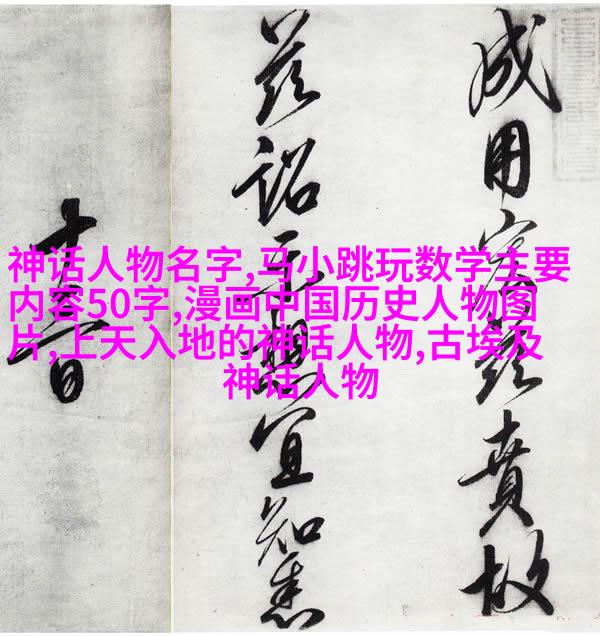 神话人物名字,马小跳玩数学主要
内容50字,漫画中国历史人物图
片,上天入地的神话人物,古埃及
神话人物
成用茲賁故
茲詔示想宜知悉